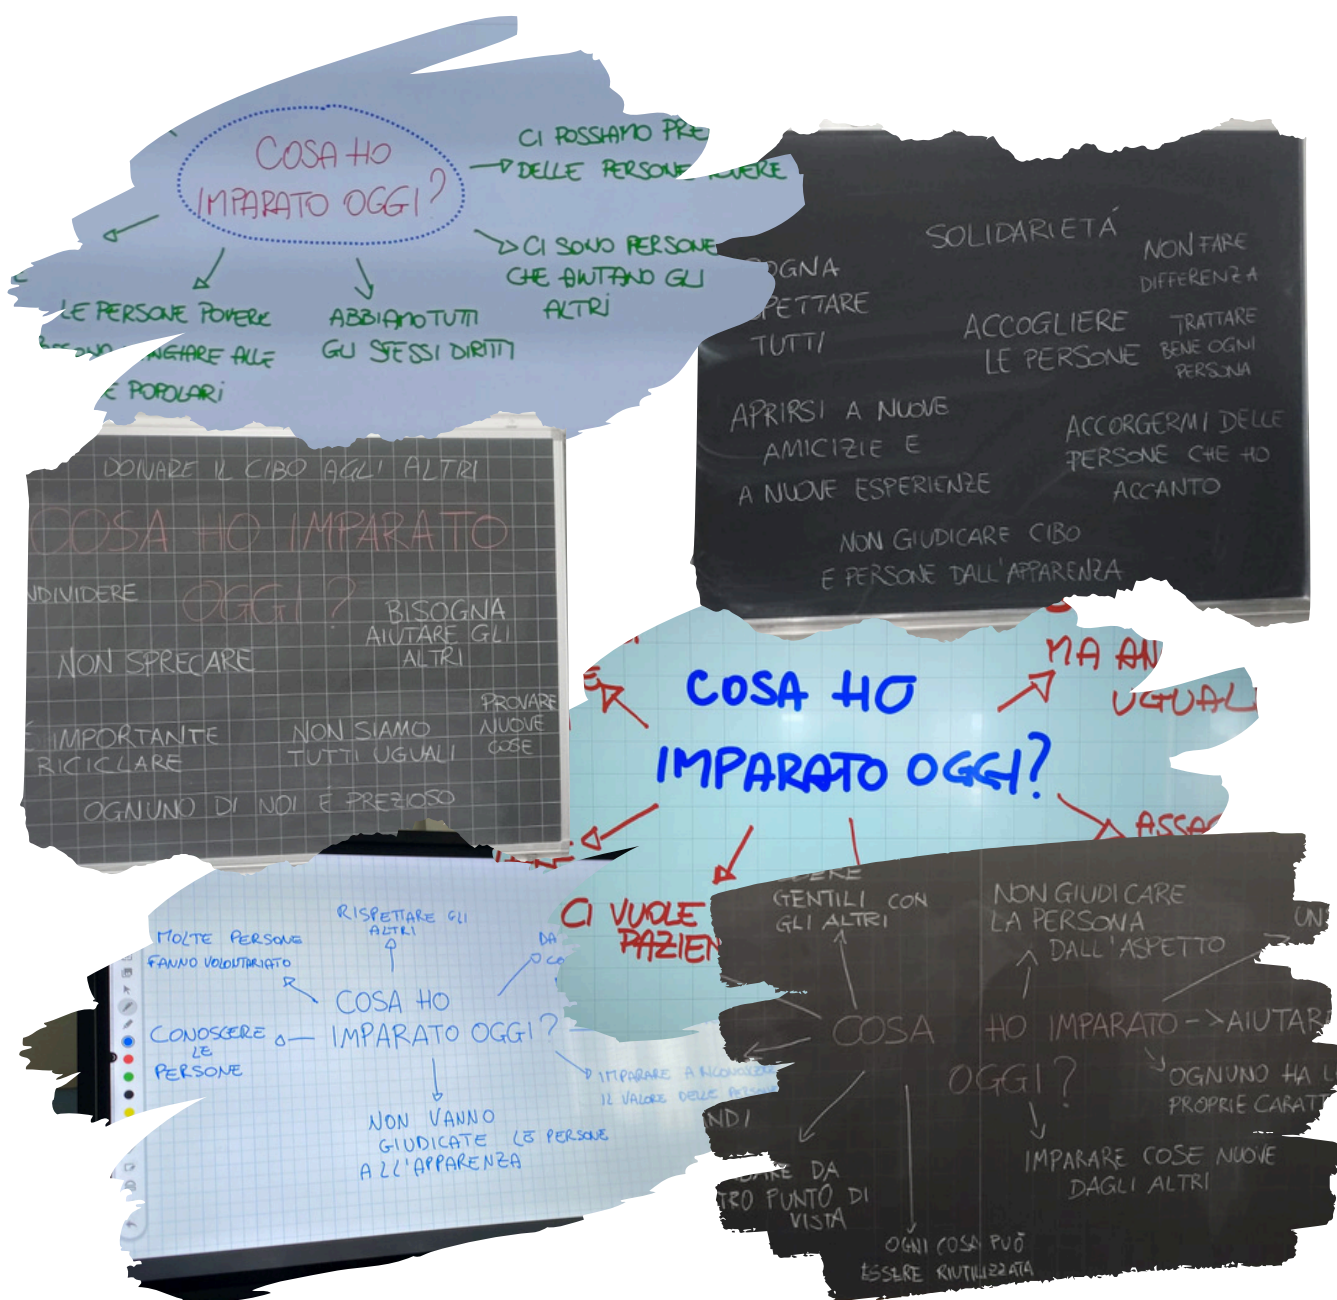 COSA HO
IMPARATO OGGI?
CI POSSIAMO PRE
DELLE PERSONE POVERE
CI SONO PERSONE
CHE AIUTANO GLI
ALTRI
ABBIAMO TUTTI
GLI STESSI DIRITTI
LE PERSONE POVERE
NGIARE ALLE
E POPOLARI
SOLIDARIETÁ
NON FARE
DIFFERENZA
OGNA
PETTARE
TUTTI
ACCOGLIERE
LE PERSONE
TRATTARE
BENE OGNI
PERSONA
APRIRSI A NUOVE
AMICIZIE E
A NUOVE ESPERIENZE
ACCORGERMI DELLE
PERSONE CHE HO
ACCANTO
NON GIUDICARE CIBO
E PERSONE DALL'APPARENZA
DONARE IL CIBO AGLI ALTRI
COSA HO IMPARATO
OGGI?
NDIVIDERE
BISOGNA
AIUTARE GLI
ALTRI
NON SPRECARE
PROVARE
NUOVE
COSE
É IMPORTANTE
RICICLARE
NON SIAMO
TUTTI UGUALI
OGNUNO DI NOI É PREZIOSO
COSA HO
IMPARATO OGGI?
MA AN
UGUAL
ASSA
CI VUOLE
PAZIEN
RISPETTARE GLI
ALTRI
MOLTE PERSONE
FANNO VOLONTARIATO
DA
CO
COSA HO
IMPARATO OGGI?
CONOSCERE
LE
PERSONE
IMPARARE A RICONOSCERE
IL VALORE DELLE PERSONE
NON VANNO
GIUDICATE LE PERSONE
ALL'APPARENZA
GENTILI CON
GLI ALTRI
NON GIUDICARE
LA PERSONA
DALL'ASPETTO
UN
COSA HO IMPARATO
OGGI?
AIUTAR
OGNUNO HA L
PROPRIE CARATT
IMPARARE COSE NUOVE
DAGLI ALTRI
NDI
ARE DA
TRO PUNTO DI
VISTA
OGNI COSA PUÒ
ESSERE RIUTILIZZATA